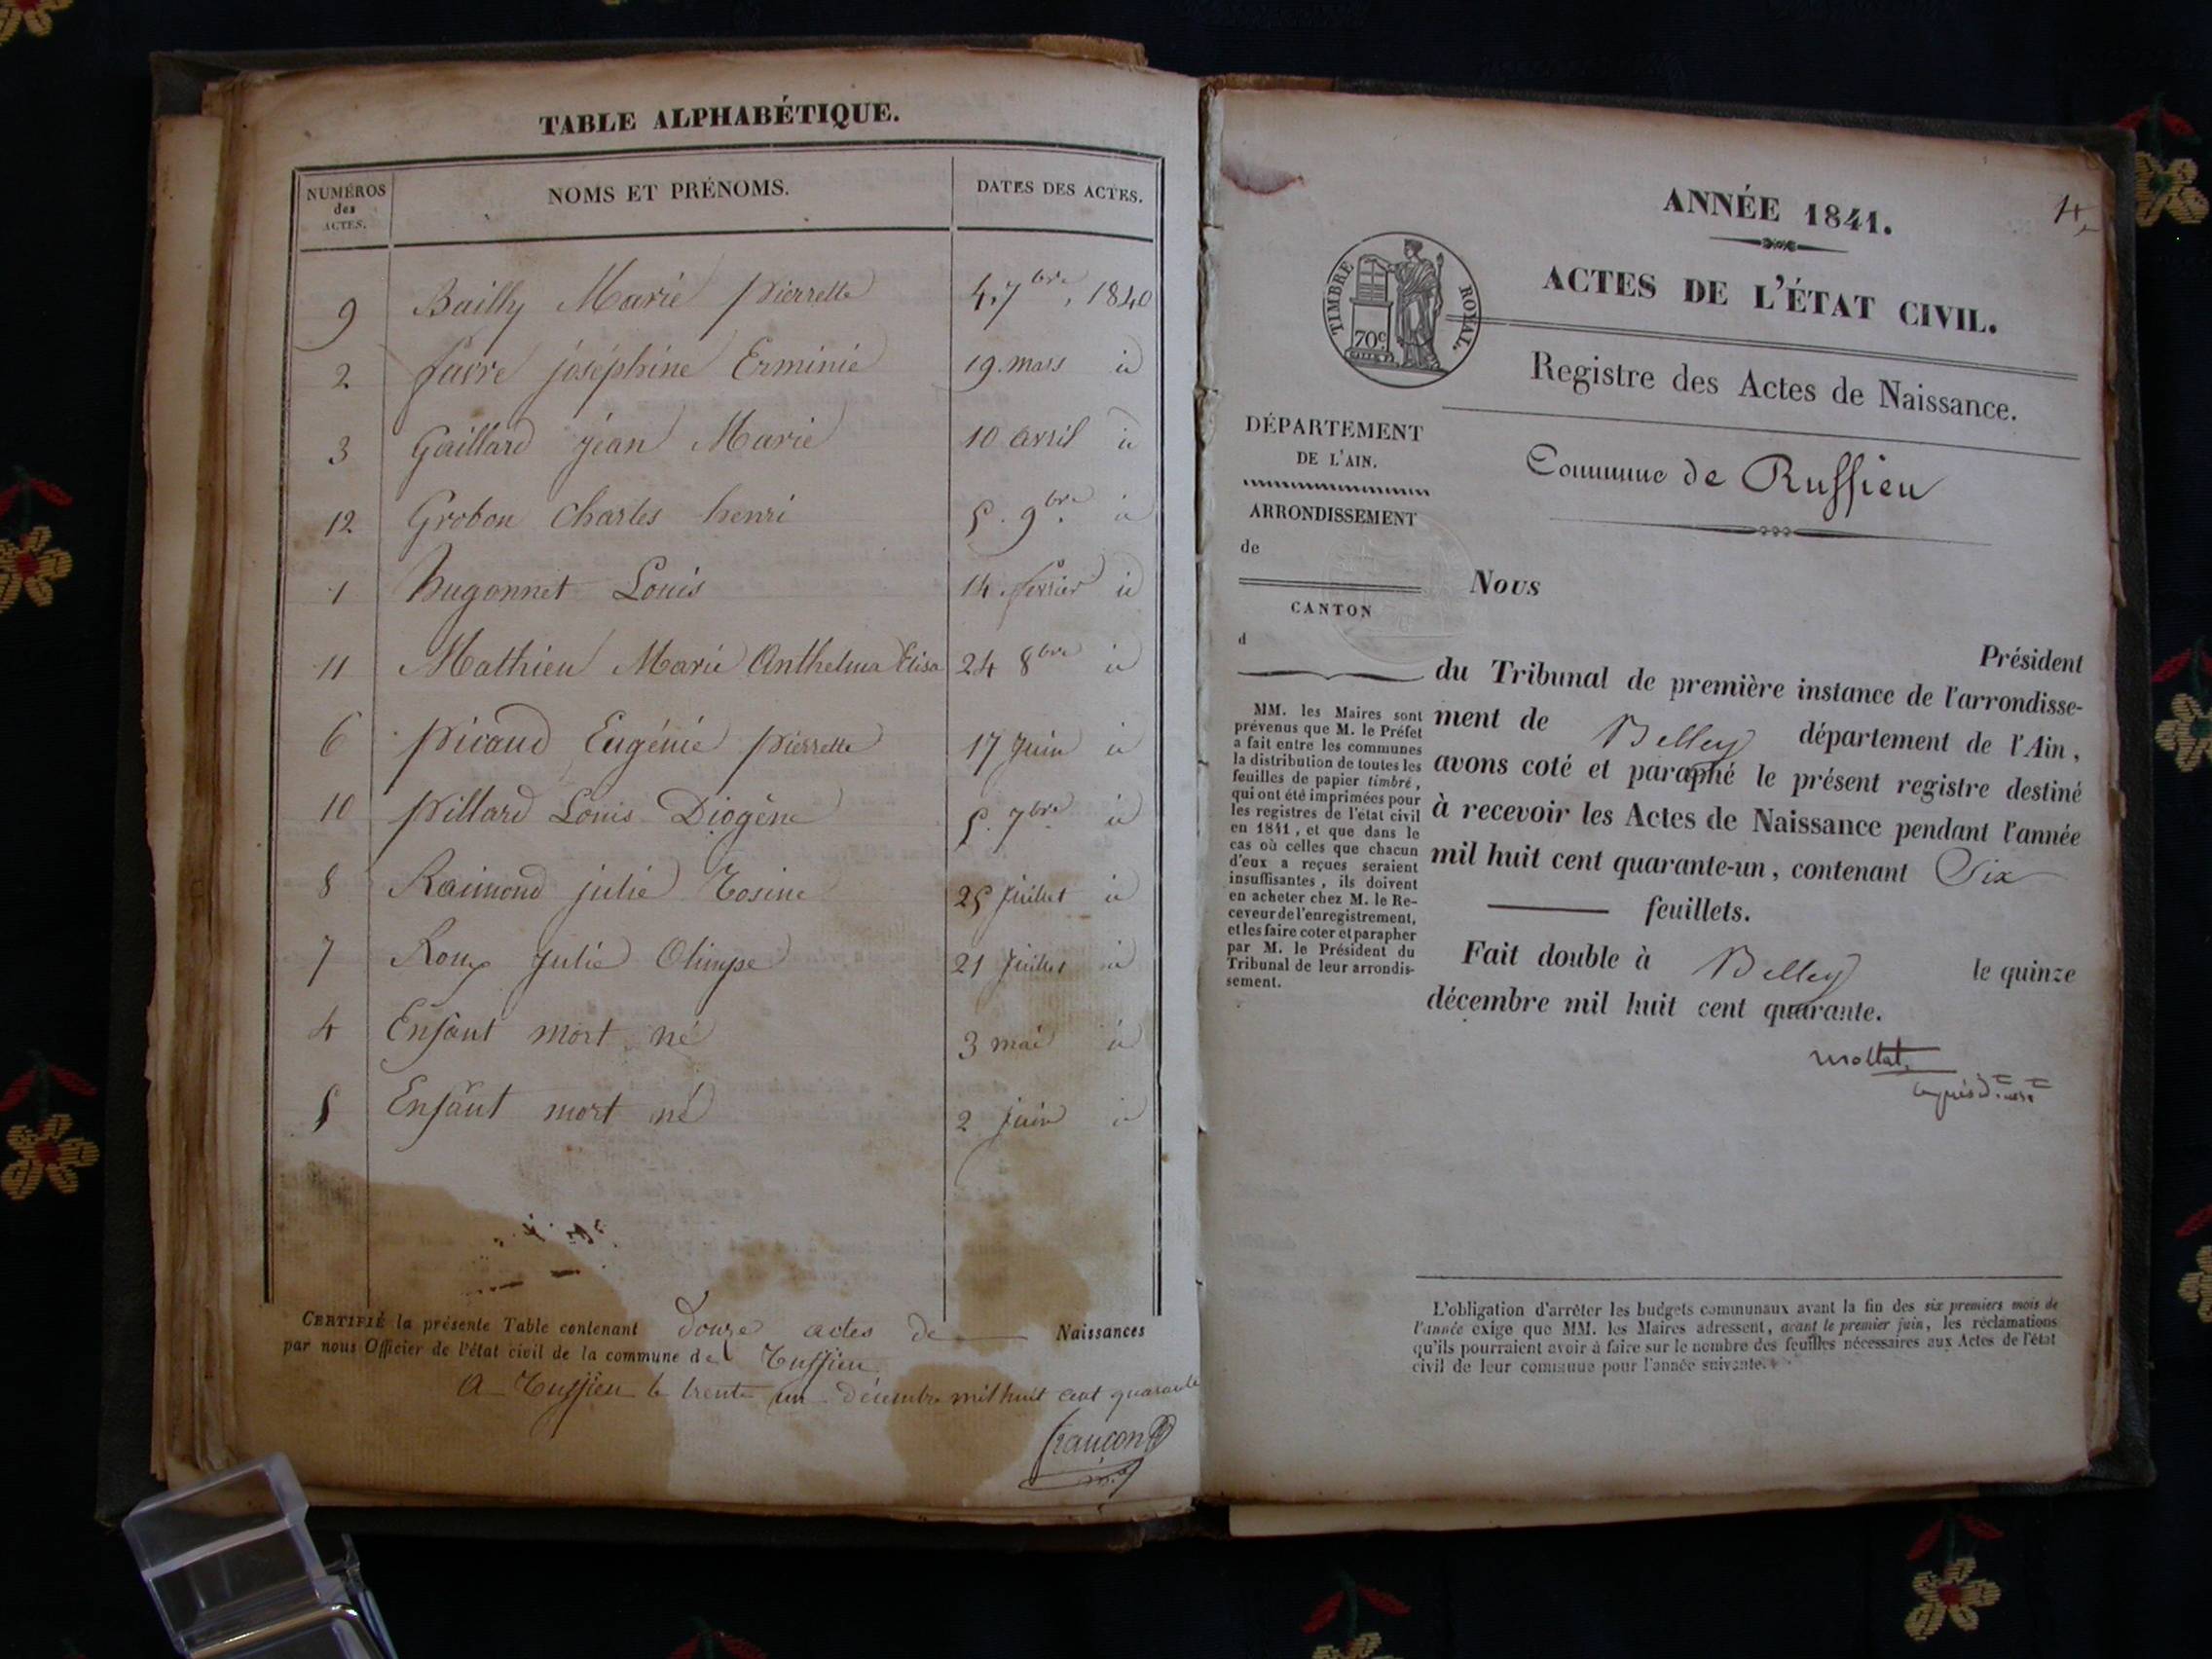 TABLE ALPHABÉTIQUE.
NUMÉROS des ACTES. NOMS ET PRÉNOMS. DATES DES ACTES.
9 Bailly Marie pierrette 4. 7bre, 1840
2 favre joséphine Erminie 19. mars id
3 Gaillard jean Marie 10 avril id
12 Grobon Charles henri 5. 9bre id
1 hugonnet Louis 14. fevrier id
11 Mathieu Marie Anthelma Elisa 24 8bre id
6 picaud Eugénie pierrette 17 Juin id
10 pillard Louis Diogène 5. 7bre id
8 Raimond julie Rosine 25 Juillet id
7 Roux Julie Olimpe 21 Juillet id
4 Enfant mort né 3 mai id
5 Enfant mort né 2 juin id
CERTIFIÉ la présente Table contenant douze actes de Naissances
par nous Officier de l'état civil de la commune de Ruffieu
A Ruffieu le trente un décembre mil huit cent quarante
ANNÉE 1841.
ACTES DE L'ÉTAT CIVIL.
TIMBRE ROYAL.
70c
Registre des Actes de Naissance.
DÉPARTEMENT
DE L'AIN.
ARRONDISSEMENT
de
CANTON
d
MM. les Maires sont
prévenus que M. le Préfet
a fait entre les communes
la distribution de toutes les
feuilles de papier timbré,
qui ont été imprimées pour
les registres de l'état civil
en 1841, et que dans le
cas où celles que chacun
d'eux a reçues seraient
insuffisantes, ils doivent
en acheter chez M. le Re-
ceveur de l'enregistrement,
et les faire coter et parapher
par M. le Président du
Tribunal de leur arrondis-
sement.
Commune de Ruffieu
Nous
Président
du Tribunal de première instance de l'arrondisse-
ment de Belley département de l'Ain,
avons coté et paraphé le présent registre destiné
à recevoir les Actes de Naissance pendant l'année
mil huit cent quarante-un, contenant Six
feuillets.
Fait double à Belley le quinze
décembre mil huit cent quarante.
L'obligation d'arrêter les budgets communaux avant la fin des six premiers mois de
l'année exige que MM. les Maires adressent, avant le premier juin, les réclamations
qu'ils pourraient avoir à faire sur le nombre des feuilles nécessaires aux Actes de l'état
civil de leur commune pour l'année suivante.